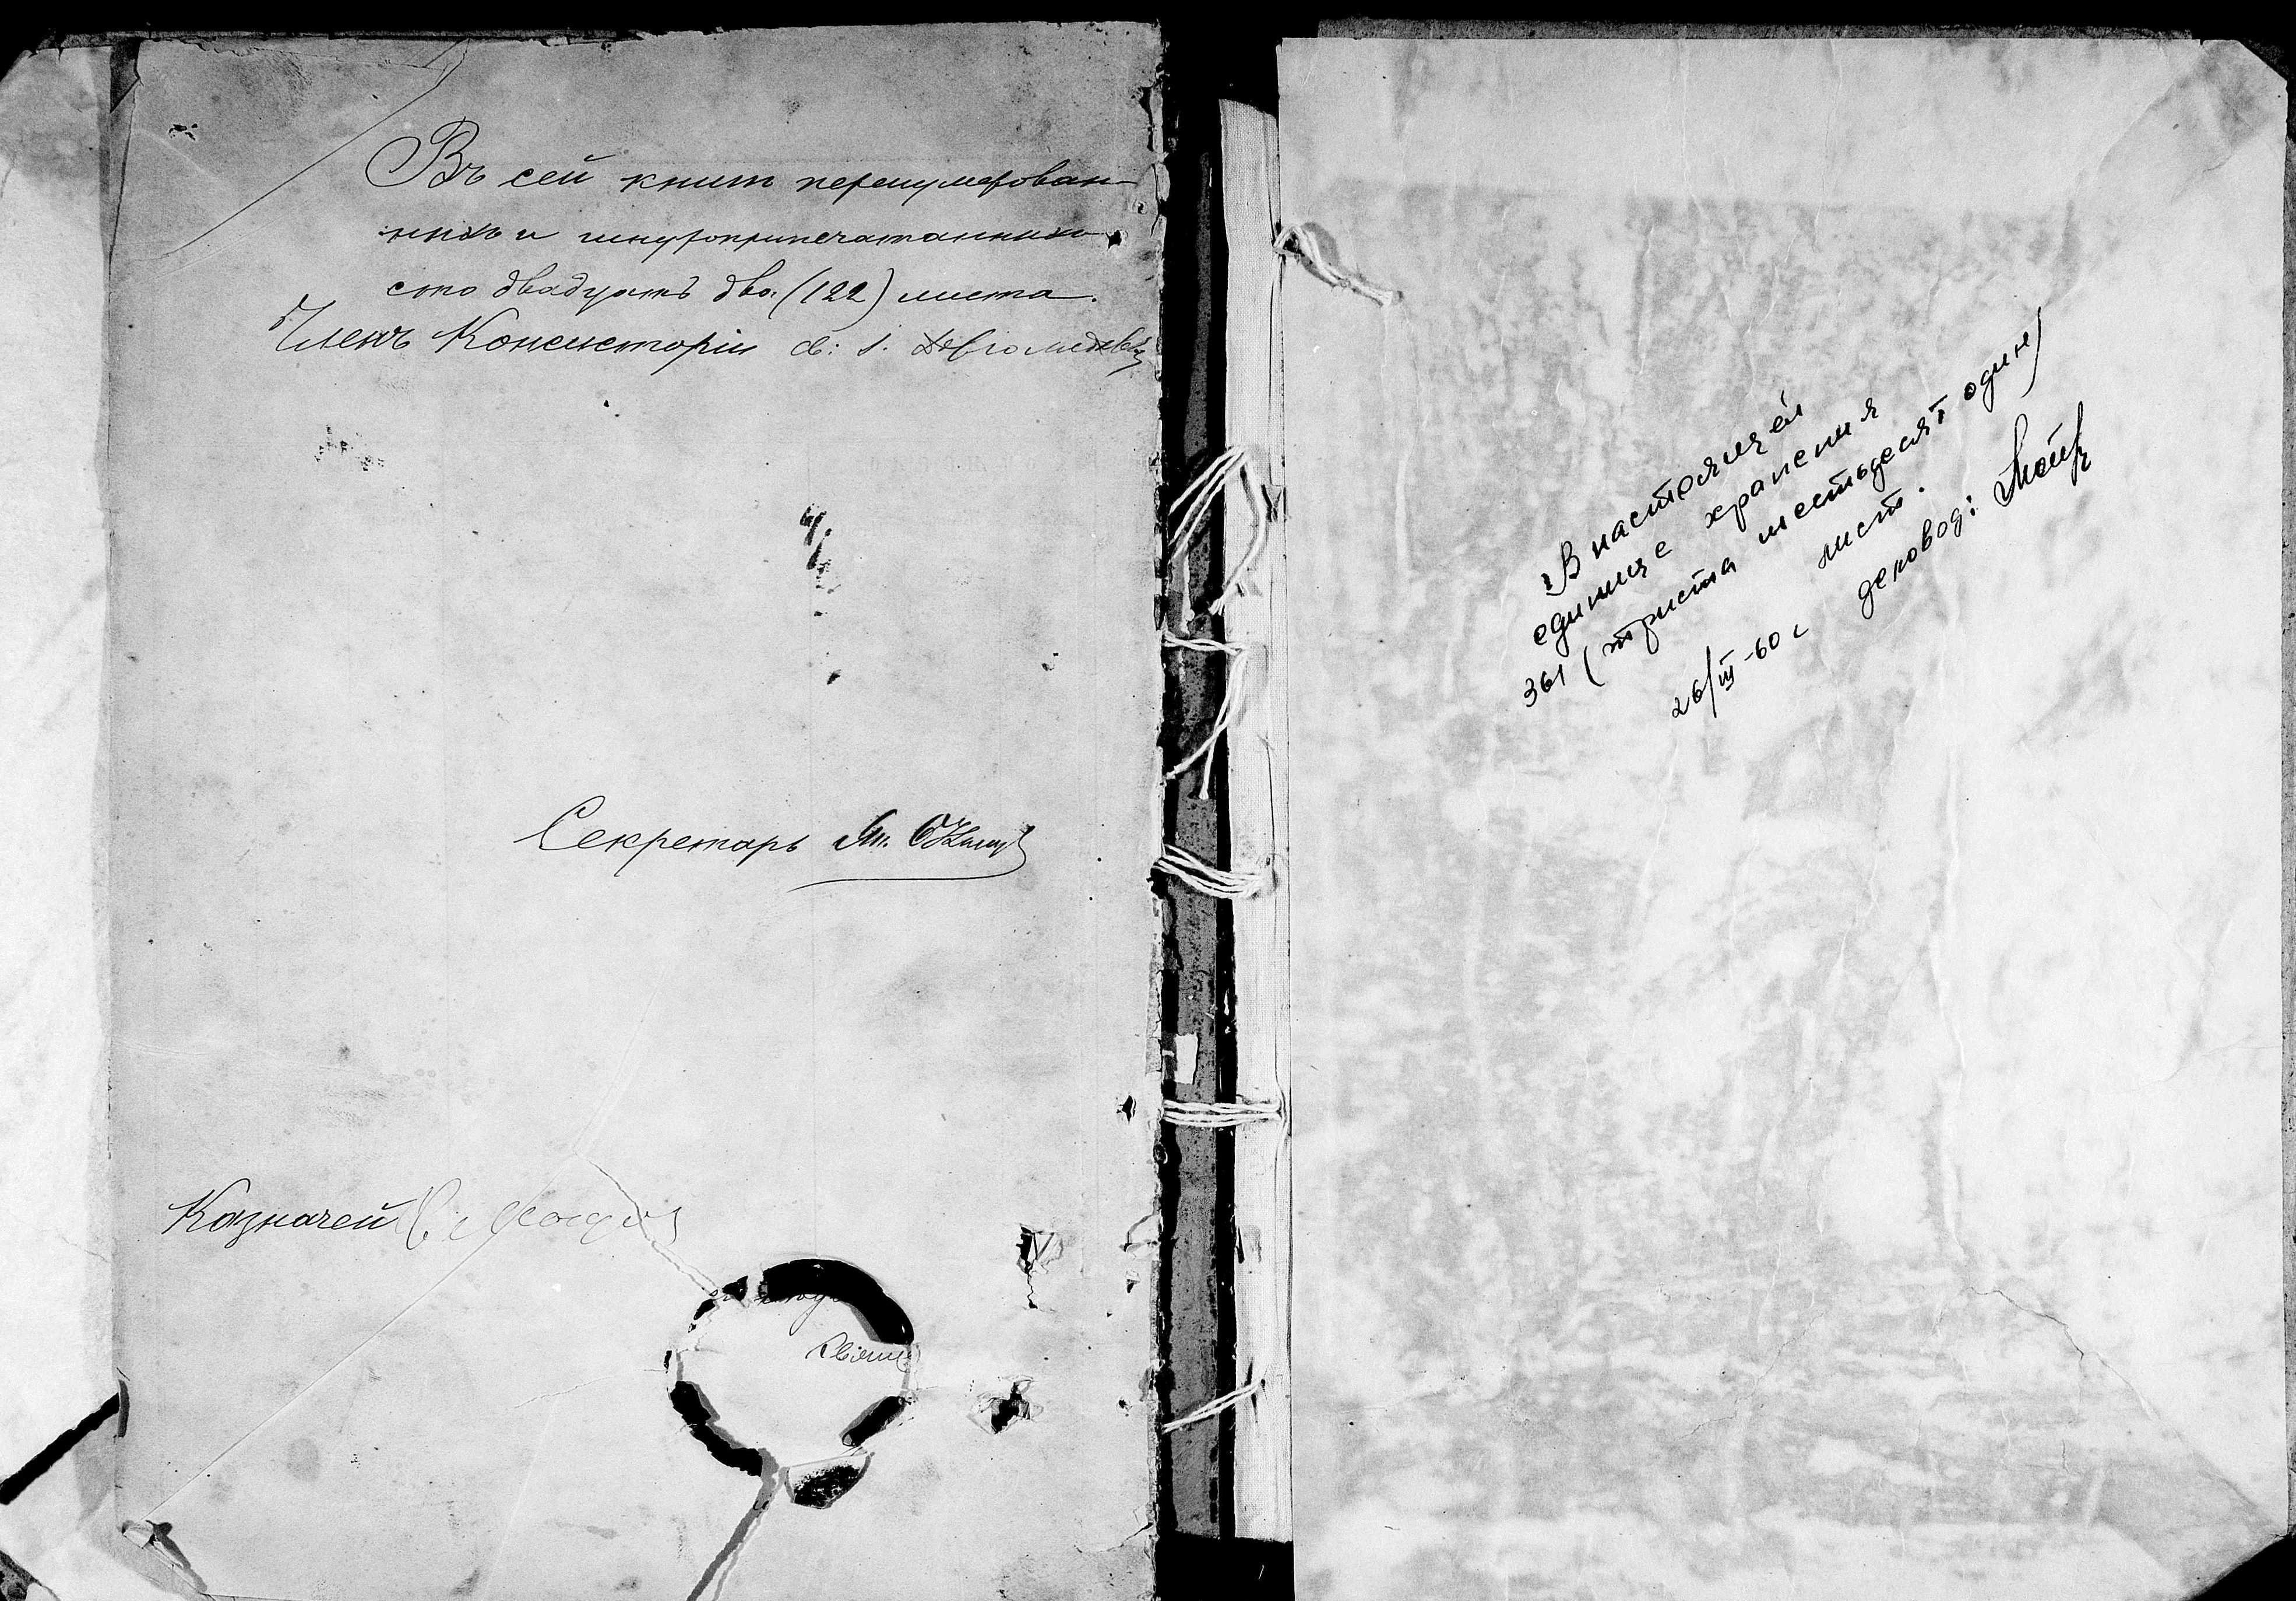 Въ сей книгѣ перенумерован-
ныхъ и шнуроприпечатанныхъ
сто двадцать два (122) листа.
Членъ Консисторіи св: І.
Секретарь
Казначей
Свящ
В настоящей
единице хранения
361 (триста шестьдесят один)
лист.
26/III-60 г деловод: